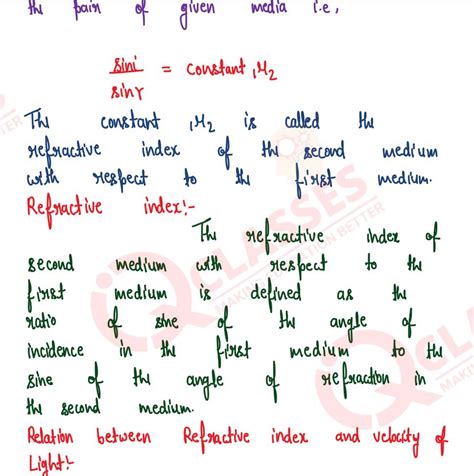 the pair of given media i.e,
sini/sinr = constant ₁μ₂
The constant ₁μ₂ is called the
refractive index of the second medium
with respect to the first medium.
Refractive index:-
The refractive index of
second medium with respect to the
first medium is defined as the
ratio of sine of the angle of
incidence in the first medium to the
sine of the angle of refraction in
the second medium.
Relation between Refractive index and velocity of
Light:-
QCLASSES
MAKING EDUCATION BETTER